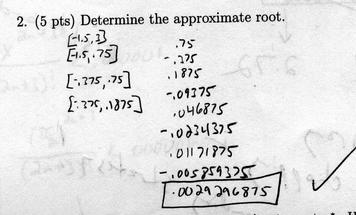 2. (5 pts) Determine the approximate root.
[-1.5, 3] .75
[-1.5, .75] -.375
[-.375, .75] .1875
[-.375, .1875] -.09375
.046875
-.0234375
.01171875
-.005859375
.0029296875